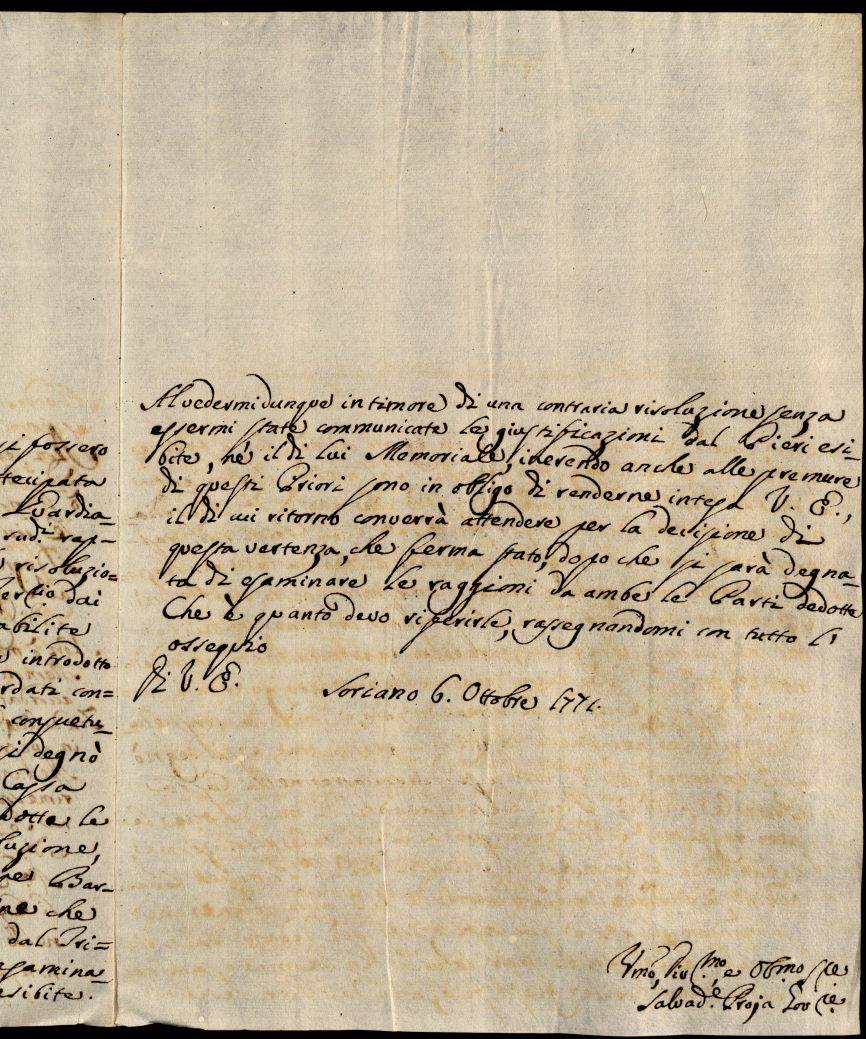 si fossero
tecipata
Guardia-
sud.i rap-
risoluzio=
dai
abilite
introdotto
rdati con=
consuetu-
si degnò
Cassa
dotte le
luzione,
ne Bar-
ne che
dal Tri=
esamina-
esibite.
Al vedermi dunque in timore di una contraria risoluzione senza
essermi state communicate le giustificazioni dal Pieri esi-
bite, né il di lui Memoriale, inerendo anche alle premure
di questi Priori sono in obligo di renderne intesa V. E.,
il di cui ritorno converrà attendere per la decisione di
questa vertenza, che ferma stato, dopo che si sarà degna-
ta di esaminare le raggioni da ambe le Parti dedotte
Che è quanto devo riferirle, rassegnandomi con tutto l'
ossequio
Di V. E.
Soriano 6. Ottobre 1771.
Umo, Divmo, e Obmo Sre
Salvad.e Proja Gov.re